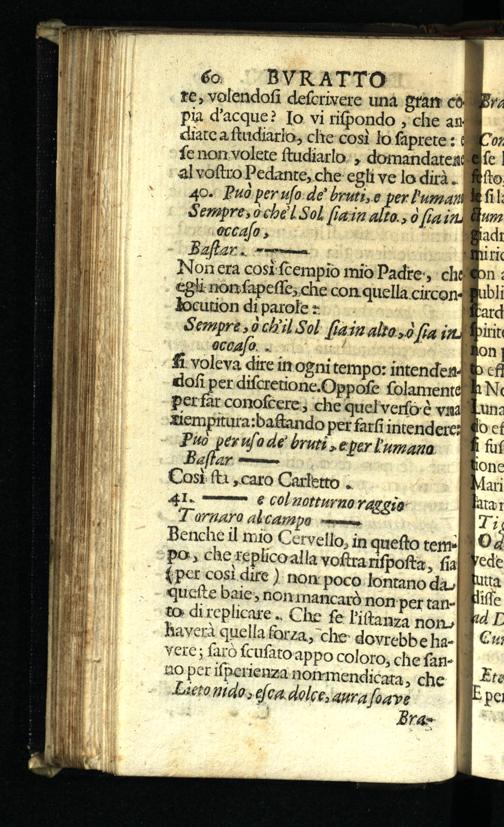 60 BVRATTO
re, volendosi descrivere una gran co-
pia d'acque? Io vi rispondo, che an-
diate a studiarlo, che così lo saprete: e
se non volete studiarlo, domandatene
al vostro Pedante, che egli ve lo dirà.
40. Può per uso de' bruti, e per l'umano
Sempre, ò che'l Sol sia in alto, ò sia in
occaso,
Bastar. ———
Non era così scempio mio Padre, che
egli non sapesse, che con quella circon-
locution di parole:
Sempre, ò ch'il Sol sia in alto, ò sia in
occaso.
si voleva dire in ogni tempo: intenden-
dosi per discretione. Oppose solamente
per far conoscere, che quel verso è una
riempitura: bastando per farsi intendere:
Può per uso de' bruti, e per l'umano
Bastar ———
Così sta, caro Carletto.
41. ——— e col notturno raggio
Tornaro al campo ———
Benche il mio Cervello, in questo tem-
po, che replico alla vostra risposta, sia
(per così dire) non poco lontano da
queste baie, non mancarò non per tan-
to di replicare. Che se l'istanza non
haverà quella forza, che dovrebbe ha-
vere; sarò scusato appo coloro, che san-
no per isperienza non mendicata, che
Lieto nido, esca dolce, aura soave
Bra-